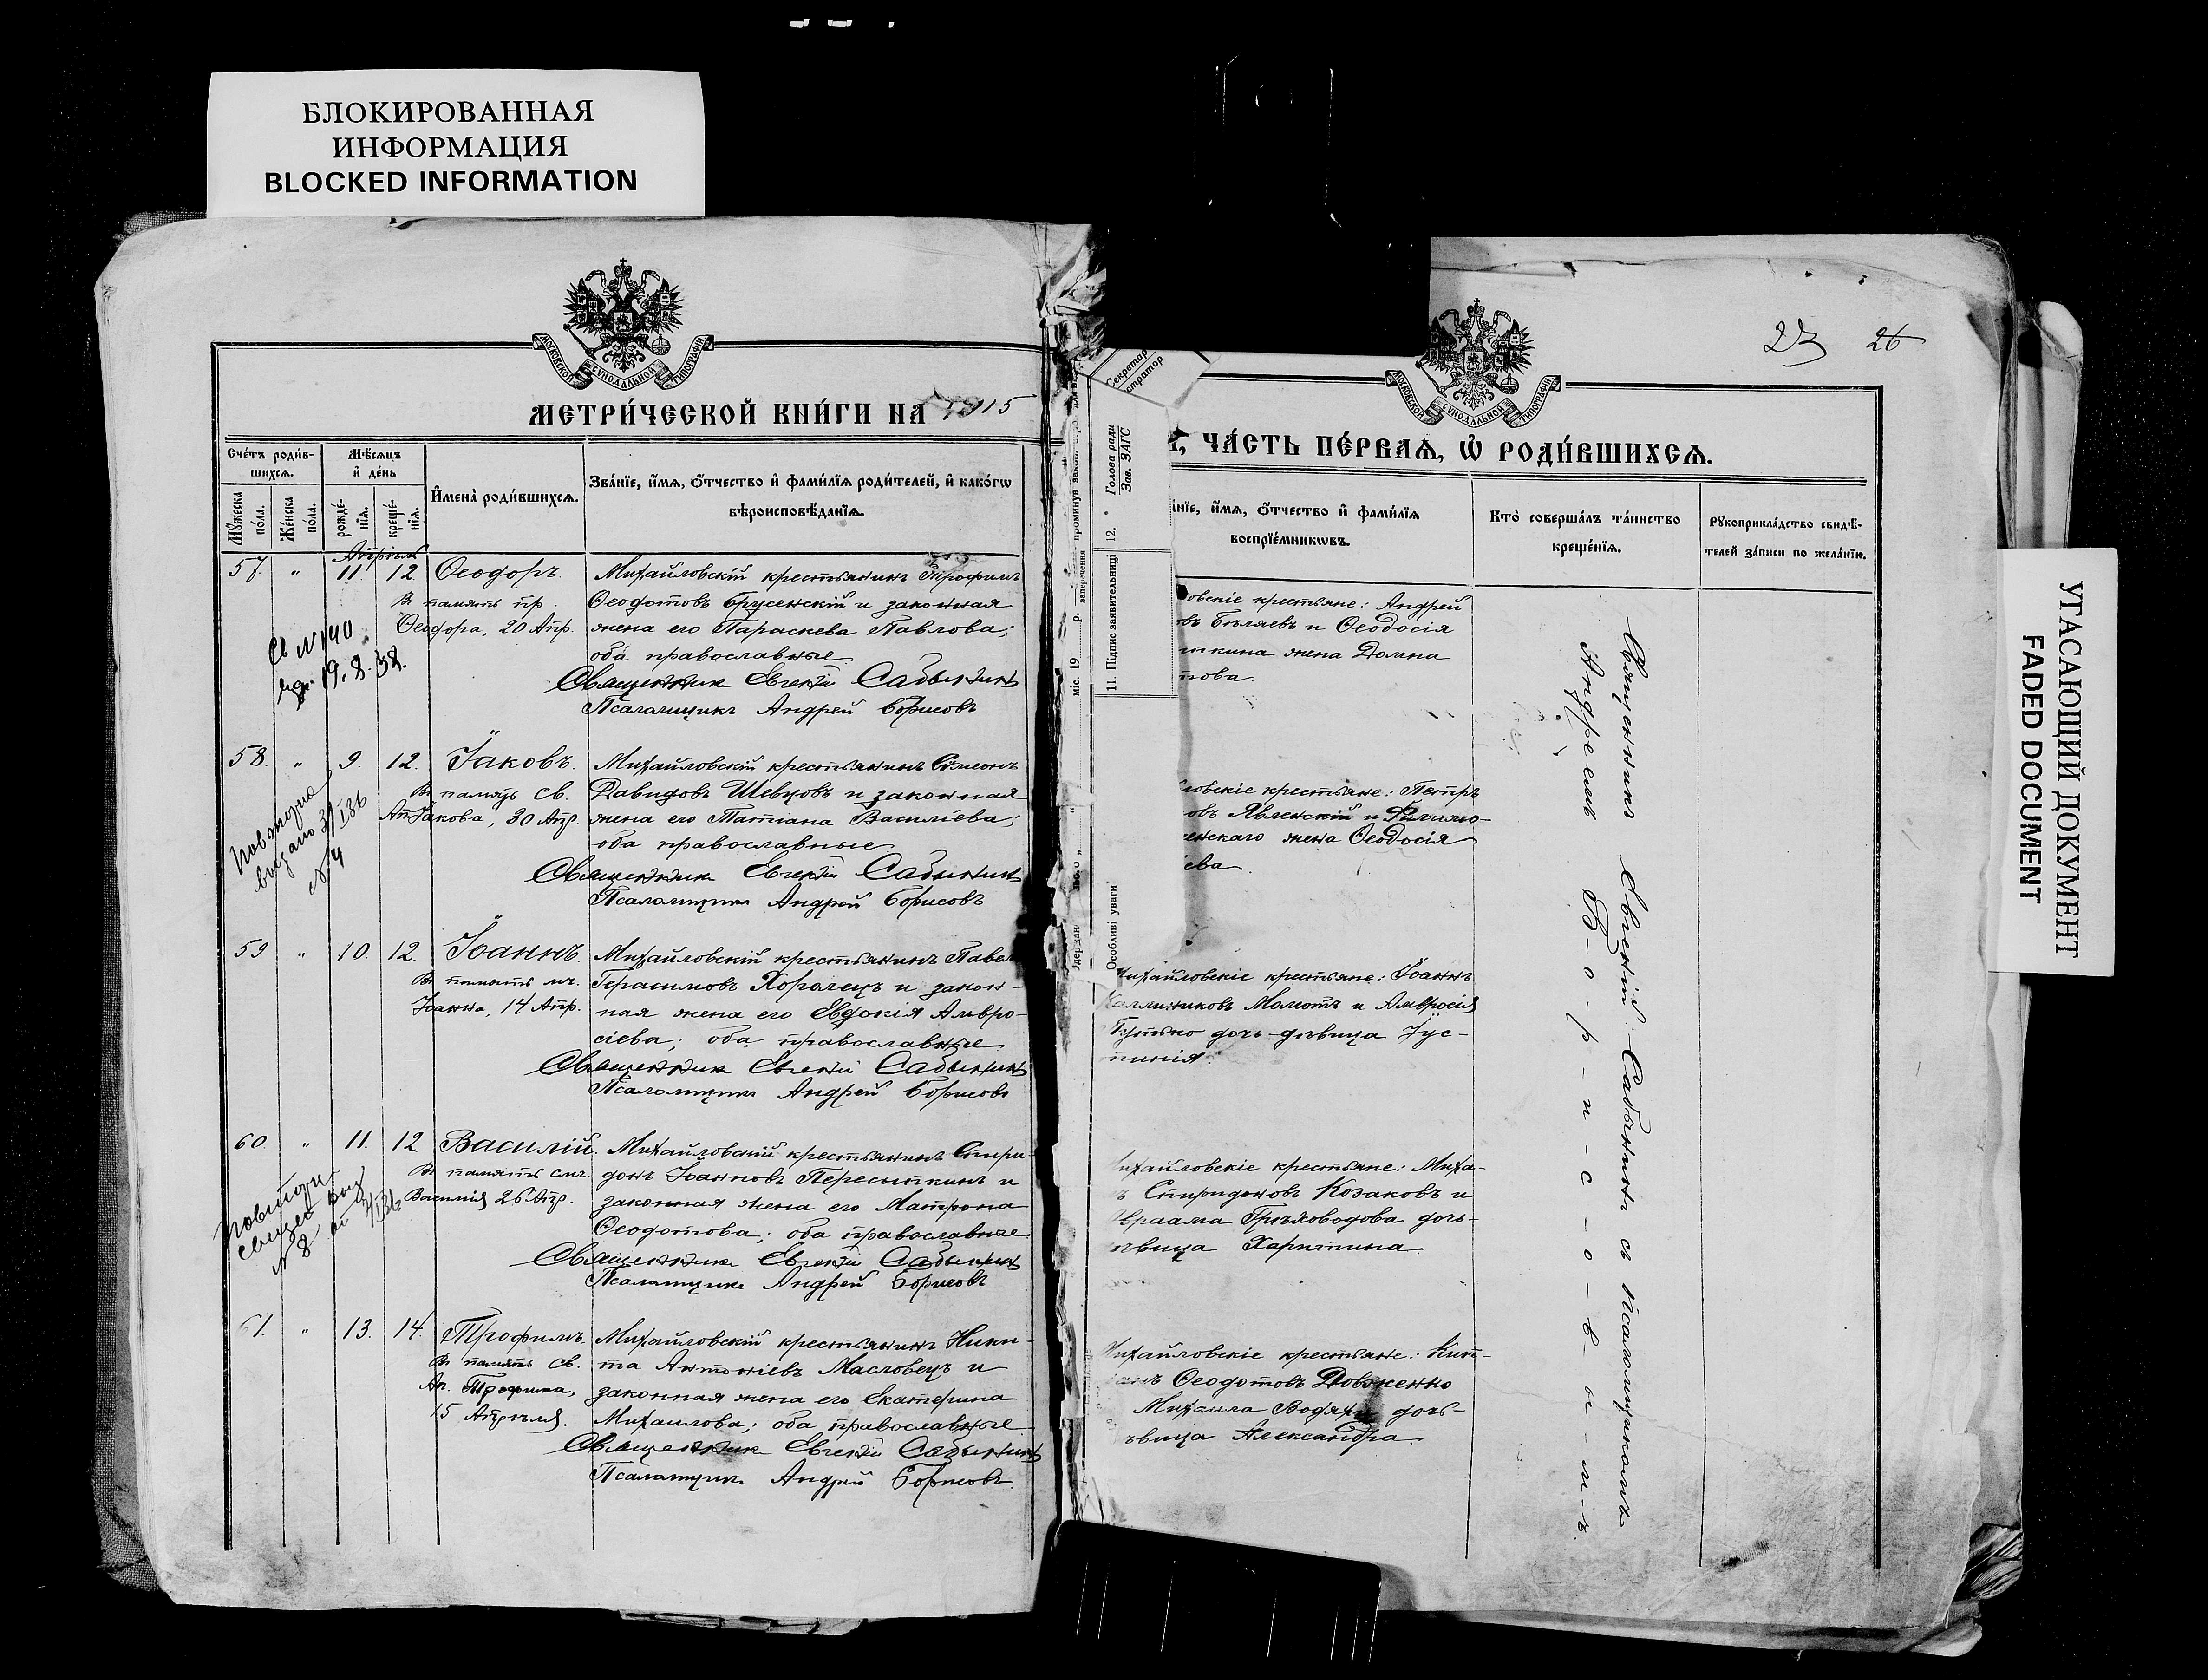 БЛОКИРОВАННАЯ
ИНФОРМАЦИЯ
BLOCKED INFORMATION
МОСКОВСКОЙ СУНОДАЛЬНОЙ ТИПОГРАФІИ
МЕТРИ́ЧЕСКОЙ КНИ́ГИ НА 1915
Сче́тъ роди́в-
шихсѧ.
Мѣ́сѧцъ
и҆ де́нь
Мꙋ́жеска
по́ла.
Же́нска
по́ла.
рожде́-
нїѧ.
креще́-
нїѧ.
И҆мена̀ роди́вшихсѧ.
Зва́нїе, и҆́мѧ, ѻ҆́тчество и҆ фами́лїѧ роди́телей, и҆ како́гѡ
вѣроисповѣ́данїѧ.
Апрѣль
57. " 11. 12. Ѳеодоръ.
Въ память пр.
Ѳеодора, 20 Апр.
Св №140
19.8.38.
Михайловскій крестьянинъ Трофимъ
Ѳеодотовъ Брусенскій и законная
жена его Параскева Павлова;
оба православные.
Священникъ Евгеній Сабынинъ
Псаломщикъ Андрей Борисовъ
58. " 9. 12. Іаковъ.
Въ память св.
Ап. Іакова, 30 Апр.
Повторно
выдано
№ 4
Михайловскій крестьянинъ Симеонъ
Давидовъ Шевцовъ и законная
жена его Татіана Василіева;
оба православные.
Священникъ Евгеній Сабынинъ
Псаломщикъ Андрей Борисовъ
59 " 10. 12. Іоаннъ.
Въ память мч.
Іоанна, 14 Апр.
Михайловскій крестьянинъ Павелъ
Герасимовъ Хоролецъ и закон-
ная жена его Евдокія Амвро-
сіева; оба православные
Священникъ Евгеній Сабынинъ
Псаломщикъ Андрей Борисовъ
60. " 11. 12 Василій.
Въ память смч.
Василія 26 Апр.
№ 8
Михайловскій крестьянинъ Спири-
донъ Іоанновъ Пересыпкинъ и
законная жена его Матрона
Ѳеодотова; оба православные
Священникъ Евгеній Сабынинъ
Псаломщикъ Андрей Борисовъ
61. " 13. 14. Трофимъ.
Въ память св.
Ап. Трофима,
15 Апрѣля.
Михайловскій крестьянинъ Ники-
та Антоніевъ Масловецъ и
законная жена его Екатерина
Михаилова; оба православные
Священникъ Евгеній Сабынинъ
Псаломщикъ Андрей Борисовъ.
Секретар
стратор
Голова ради
Зав. ЗАГС
12.
11. Підпис заявительниці
Особливі уваги
міс. 19 р.
23 26
МОСКОВСКОЙ СУНОДАЛЬНОЙ ТИПОГРАФІИ
, ЧА́СТЬ ПЕ́РВАѦ, Ѽ РОДИ́ВШИХСѦ.
нїе, и҆́мѧ, ѻ҆́тчество и҆ фами́лїѧ
воспрїе́мникѡвъ.
Кто̀ соверша́лъ та́инство
креще́нїѧ.
Рꙋкоприкла́дство свидѣ́-
телей за́писи по жела́нїю.
овскіе крестьяне: Андрей
овъ Бѣляевъ и Ѳеодосія
ткина жена Домна
това.
ловскіе крестьяне: Петръ
овъ Явленскій и
енскаго жена Ѳеодосія
ева.
Михайловскіе крестьяне: Іоаннъ
Каллиниковъ Маломъ и Амвросія
дочь-дѣвица Іус-
тинія.
Михайловскіе крестьяне: Миха-
ъ Спиридоновъ Козаковъ и
Авраама Грѣховодова дочь-
ѣвица Харитина
Михайловскіе крестьяне: Кип-
ріанъ Ѳеодотовъ Довженко
Михаила дочь-
ѣвица Александра.
Священникъ Евгеній Сабынинъ съ псаломщикомъ
Андреемъ Б-о-р-и-с-о-в-ы-м-ъ.
УГАСАЮЩИЙ ДОКУМЕНТ
FADED DOCUMENT